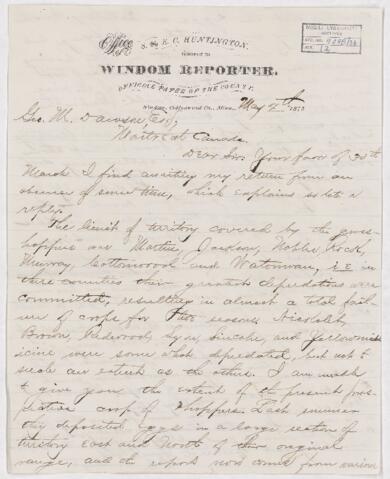 Office of S. & E. C. HUNTINGTON,
WINDOM REPORTER.
OFFICIAL PAPER OF THE COUNTY.
Windom, Cottonwood Co., Minn., May 2th 1875
Geo. M. Dawson, Esq,
Montreal Canada.
Dear Sir. Your favor of 20th
March I find awaiting my return from an
absence of some time, which explains so late a
reply.
The limit of territory covered by the grass-
hoppers are Martin, Jackson, Nobles, Rock,
Murray, Cottonwood and Watonwan, i.e. in
these counties their greatest depredations were
committed, resulting in almost a total fail-
ure of crops for the season. Nicollet,
Brown, Redwood, Lyon, Lincoln, and Yellow med-
icine were some what depredated, but not to
such an extent as the others. I am unable
to give you the extent of the present pros-
pective crop of hoppers. Last summer
they deposited eggs in a large section of
territory East and North of their original
range, and the reports now come from various